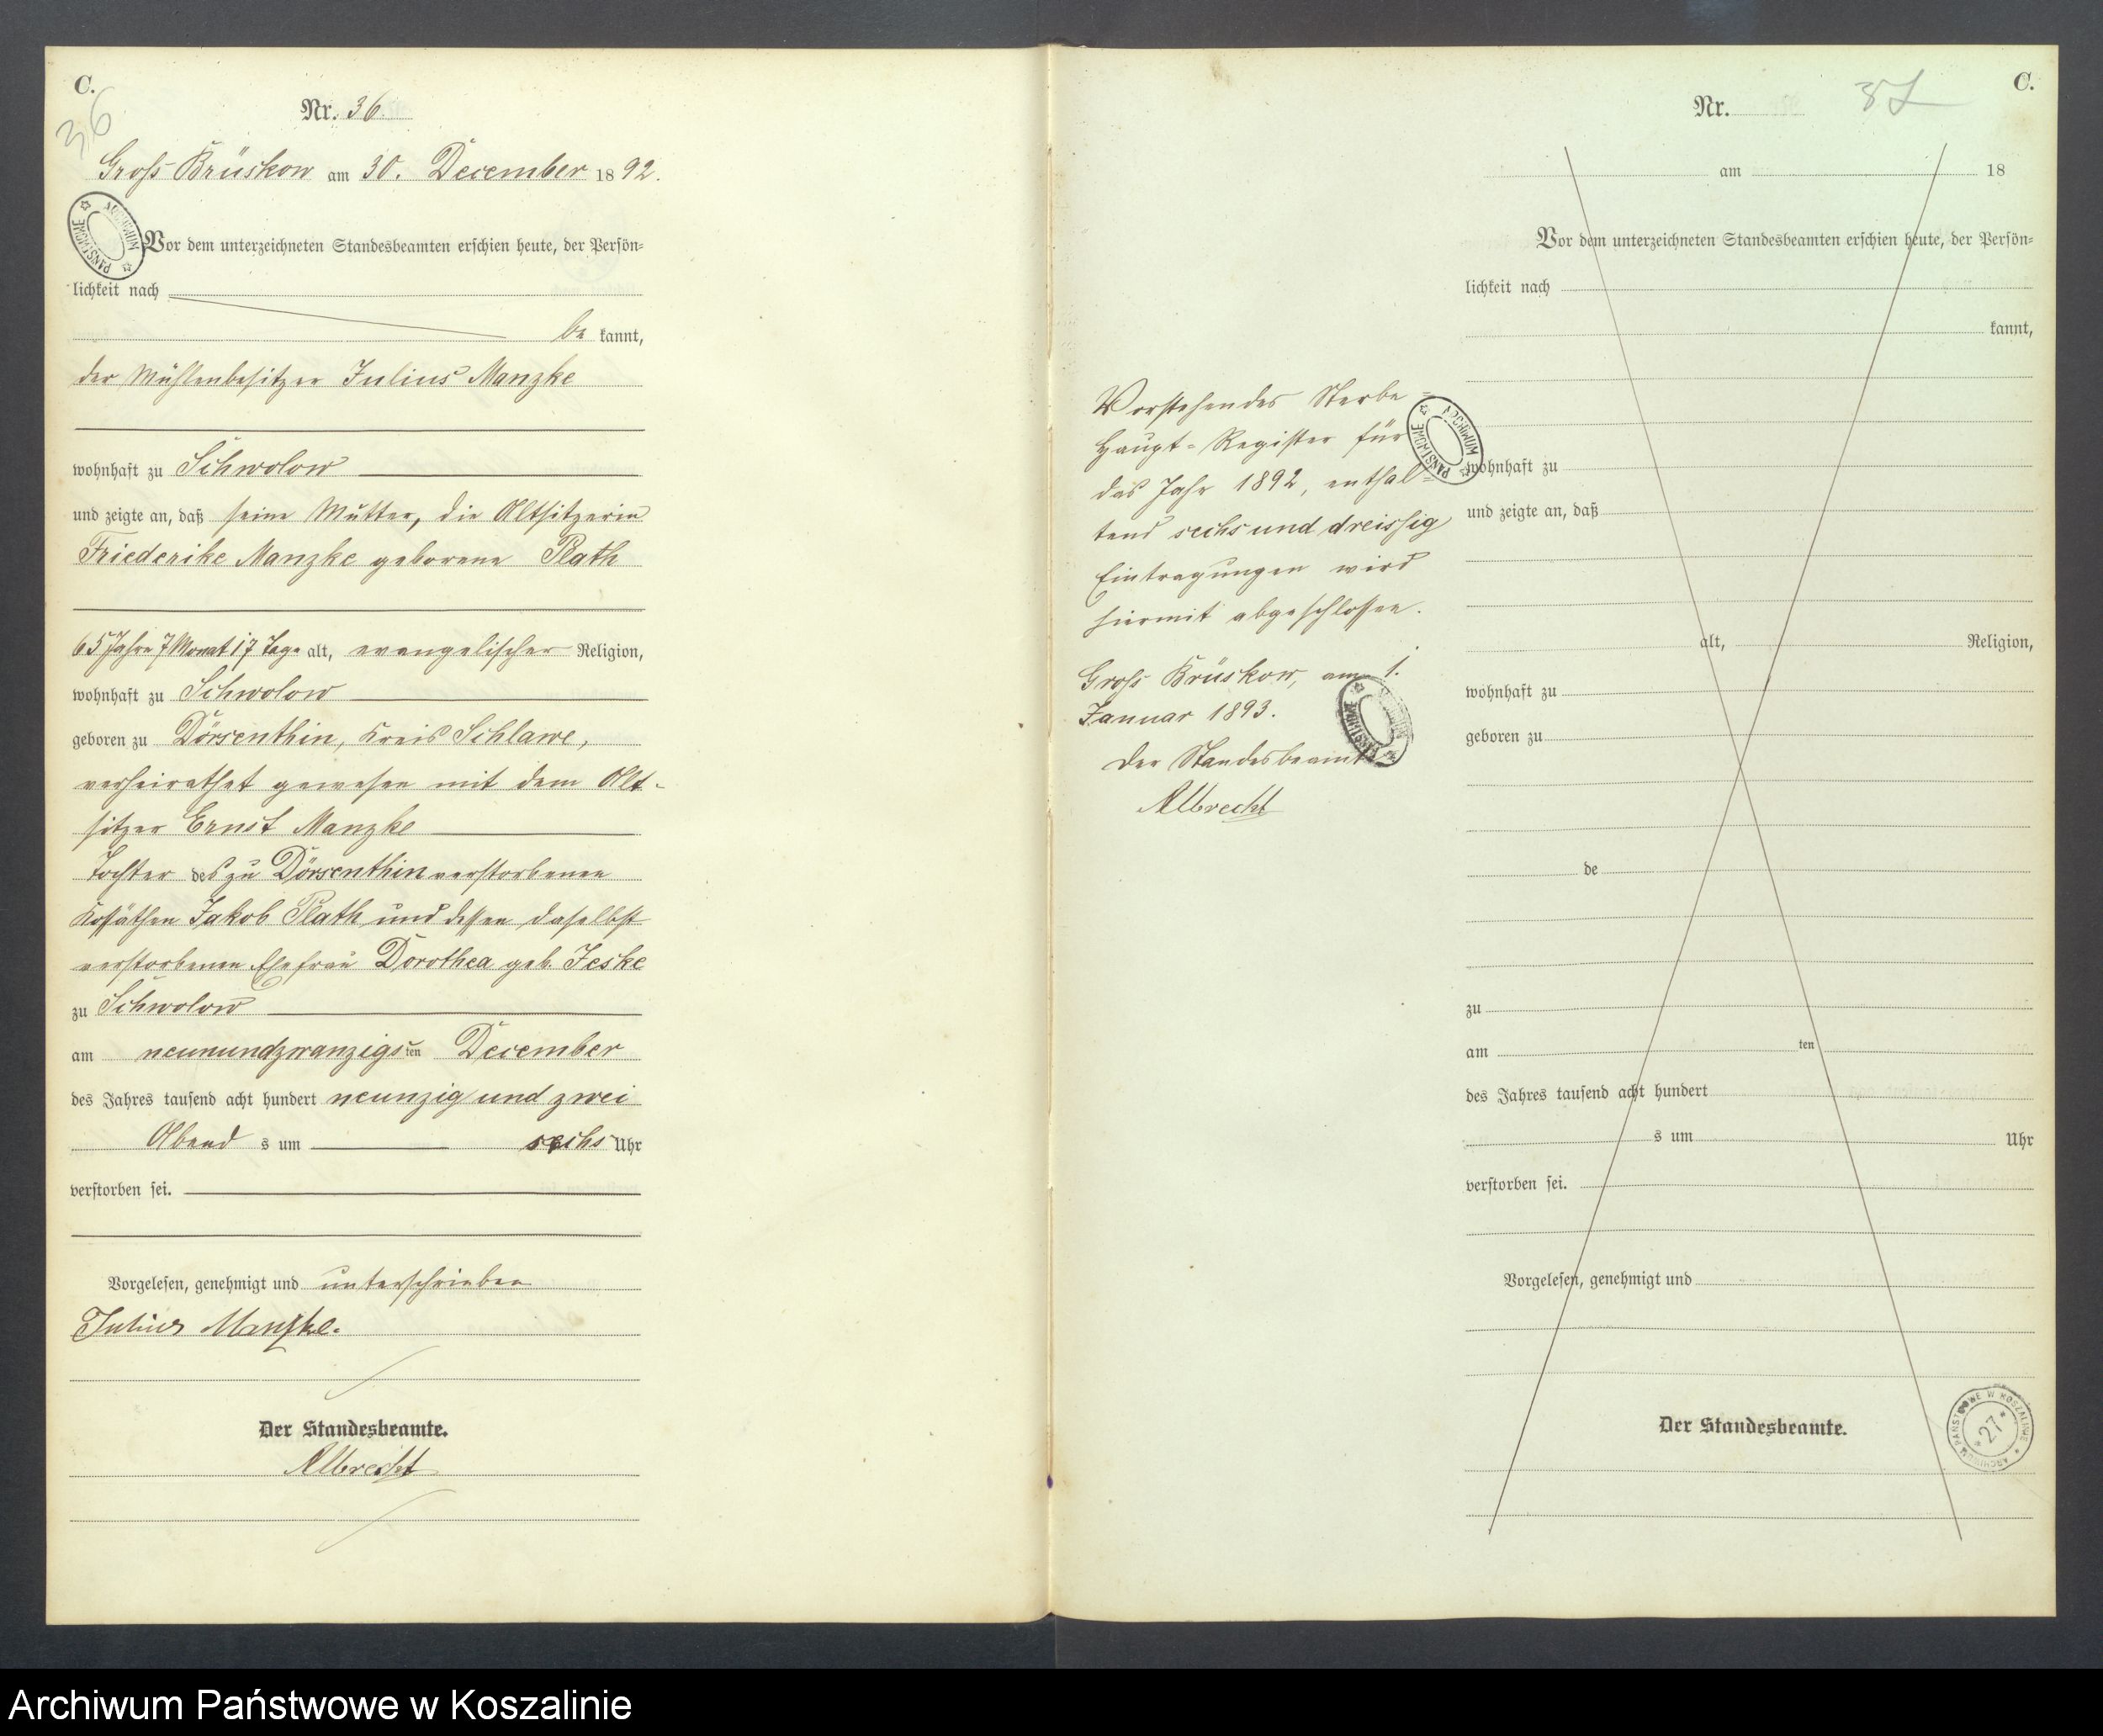 C.
36
Nr. 36.
Groß Brüskow am 30. December 1892.
ARCHIWUM PAŃSTWOWE
Vor dem unterzeichneten Standesbeamten erschien heute, der Persön-
lichkeit nach
be kannt,
der Mühlenbesitzer Julius Manzke
wohnhaft zu Schwolow
und zeigte an, daß seine Mutter, die Altsitzerin
Friederike Manzke geborene Plath
65 Jahre 7 Monat 17 Tage alt, evangelischer Religion,
wohnhaft zu Schwolow
geboren zu Dörsenthin, Kreis Schlawe,
verheirathet gewesen mit dem Alt-
sitzer Ernst Manzke
Tochter des zu Dörsenthin verstorbenen
Kossäthen Jakob Plath und dessen daselbst
verstorbenen Ehefrau Dorothea geb. Jeske
zu Schwolow
am neunundzwanzigsten December
des Jahres tausend acht hundert neunzig und zwei
Abend s um sechs Uhr
verstorben sei.
Vorgelesen, genehmigt und unterschrieben
Julius Manzke.
Der Standesbeamte.
Albrecht
Vorstehendes Sterbe-
Haupt-Register für
das Jahr 1892, enthal-
tend sechs und dreissig
Eintragungen wird
hiermit abgeschlossen.
Groß Brüskow, am 1.
Januar 1893.
Der Standesbeamte
Albrecht
ARCHIWUM PAŃSTWOWE
C.
Nr.
am 18
Vor dem unterzeichneten Standesbeamten erschien heute, der Persön-
lichkeit nach
kannt,
wohnhaft zu
und zeigte an, daß
alt, Religion,
wohnhaft zu
geboren zu
de
zu
am ten
des Jahres tausend acht hundert
s um Uhr
verstorben sei.
Vorgelesen, genehmigt und
Der Standesbeamte.
ARCHIWUM PAŃSTWOWE W KOSZALINIE
*27*
Archiwum Państwowe w Koszalinie